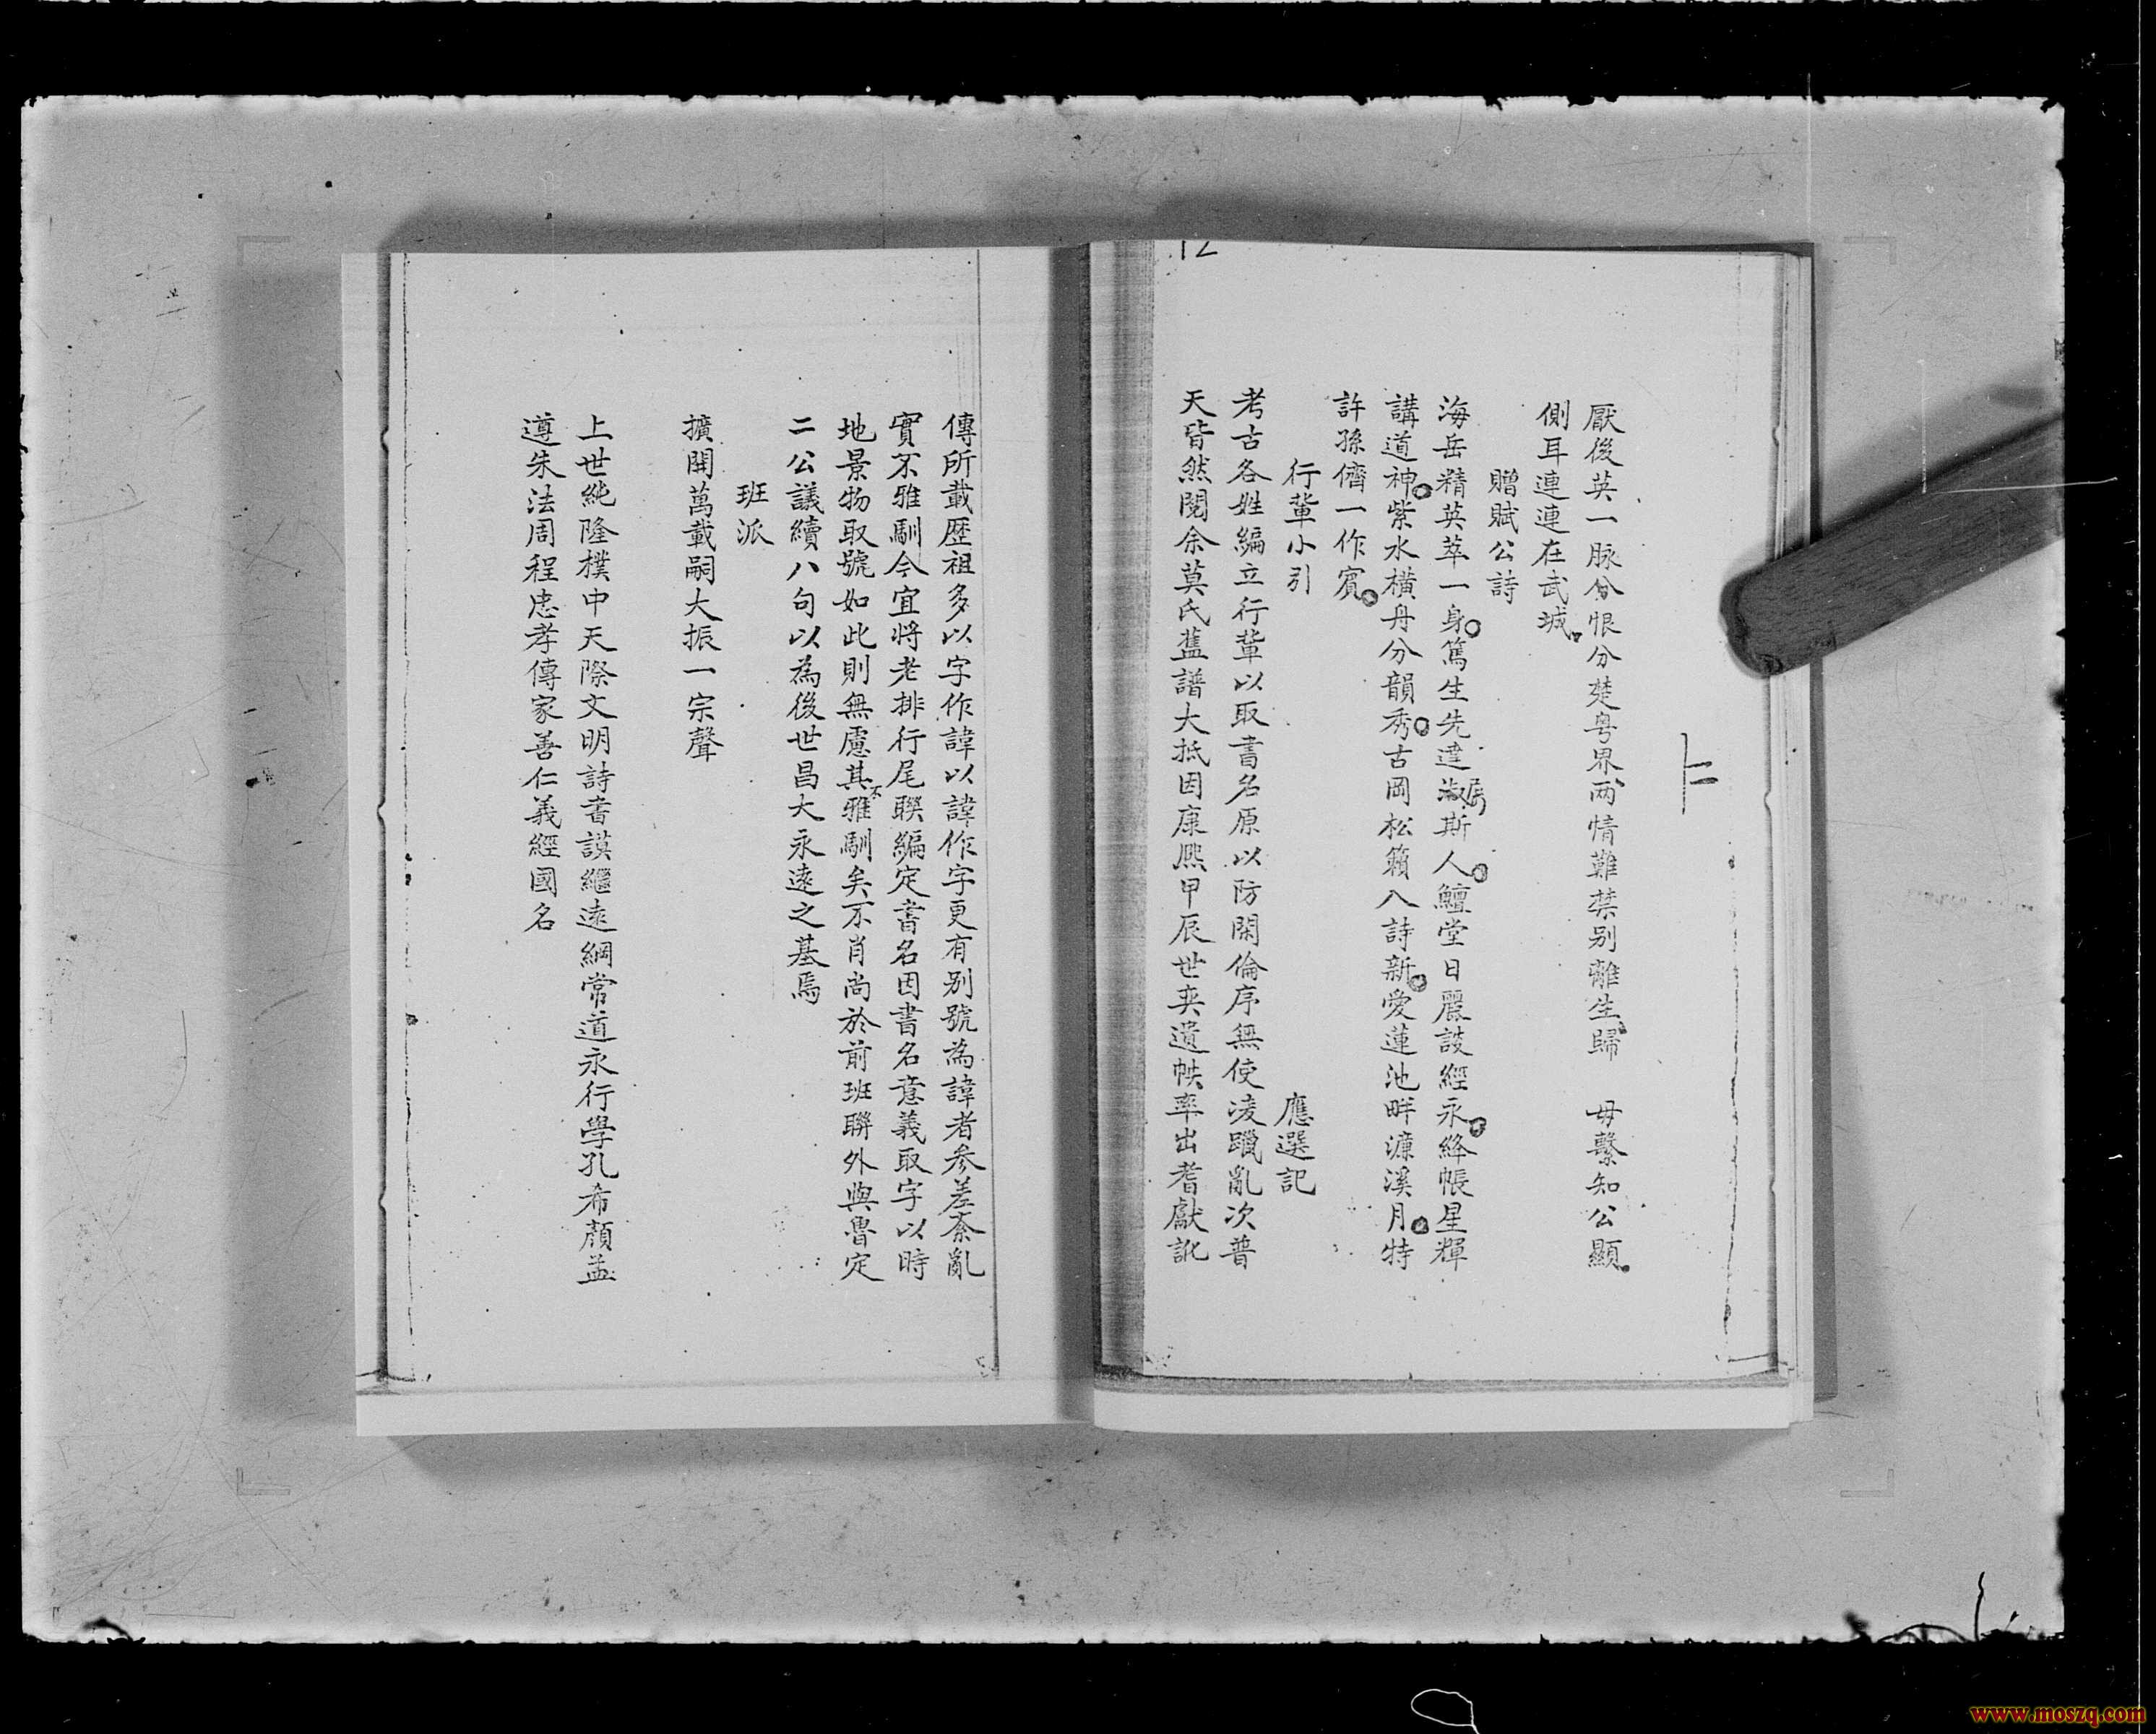 厭後英一脉分恨分楚粤界兩情難禁别離生歸　毋繫知公顯
側耳連連在武城
贈賦公詩
海岳精英萃一身篤生先達淑斯人鱣堂日麗談經永絳帳星輝
講道神紫水橫舟分韻秀古岡松籟入詩新愛蓮池畔濂溪月特
許孫儕一作賓
行軰小引　應選記
考古各姓編立行軰以取書名原以防閑倫序無使凌躐亂次普
天皆然閱余莫氏舊譜大抵因康熈甲辰世奕遺帙率出耆獻訛
12
傳所載歷祖多以字作諱以諱作字更有别號為諱者參差紊亂
實不雅馴今宜將老排行尾聨編定書名因書名意義取字以時
地景物取號如此則無慮其不雅馴矣不肖尚於前班聨外與魯定
二公議續八句以為後世昌大永遠之基焉
班派
擴開萬載嗣大振一宗聲
上世純隆樸中天際文明詩書謨繼遠綱常道永行學孔希顏孟
遵朱法周程忠孝傳家善仁義經國名
www.moszq.com